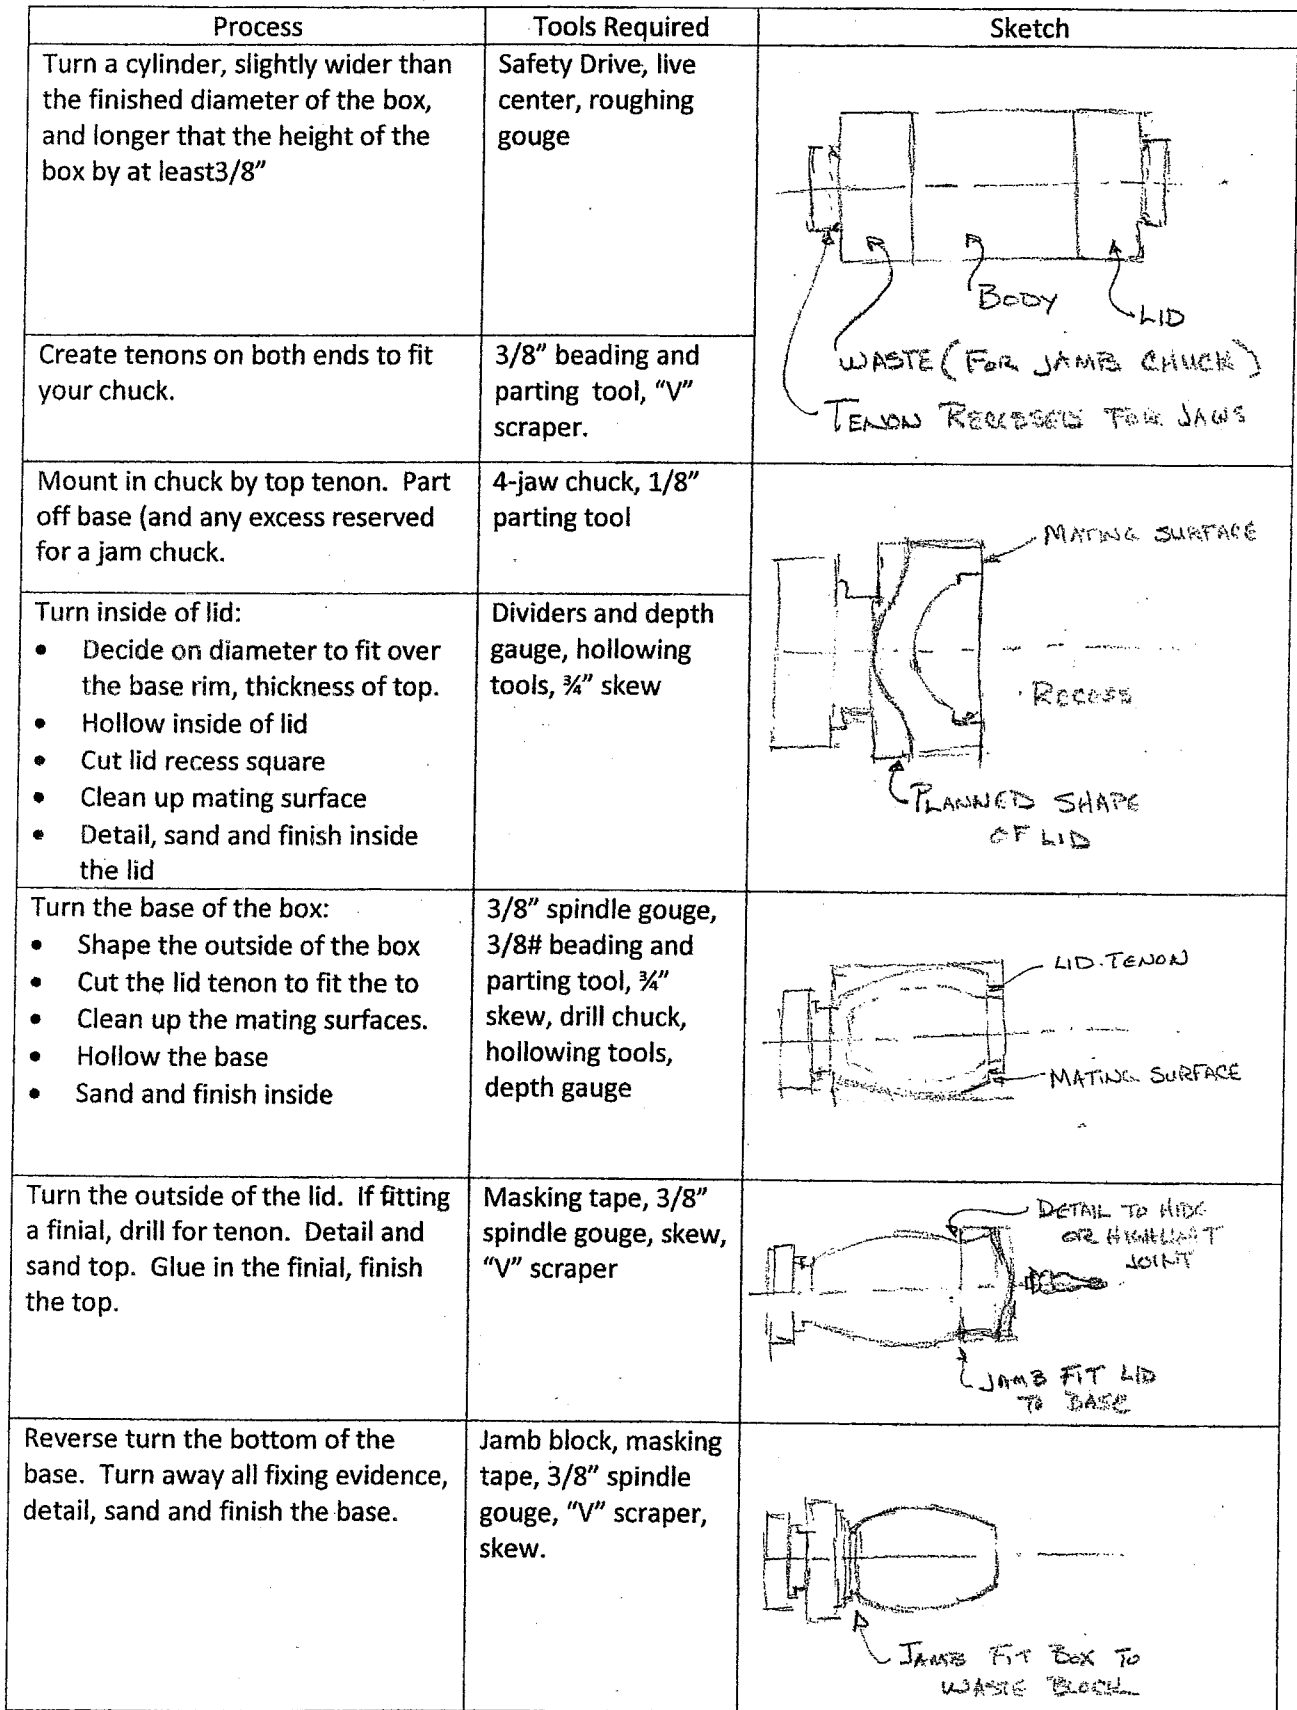 Process
Tools Required
Sketch
Turn a cylinder, slightly wider than
the finished diameter of the box,
and longer that the height of the
box by at least3/8”
Safety Drive, live
center, roughing
gouge
BODY
LID
WASTE (FOR JAMB CHUCK)
TENON RECESSED FOR JAWS
Create tenons on both ends to fit
your chuck.
3/8” beading and
parting tool, “V”
scraper.
Mount in chuck by top tenon. Part
off base (and any excess reserved
for a jam chuck.
4-jaw chuck, 1/8”
parting tool
MATING SURFACE
RECESS
PLANNED SHAPE
OF LID
Turn inside of lid:
• Decide on diameter to fit over
the base rim, thickness of top.
• Hollow inside of lid
• Cut lid recess square
• Clean up mating surface
• Detail, sand and finish inside
the lid
Dividers and depth
gauge, hollowing
tools, ¾” skew
Turn the base of the box:
• Shape the outside of the box
• Cut the lid tenon to fit the to
• Clean up the mating surfaces.
• Hollow the base
• Sand and finish inside
3/8” spindle gouge,
3/8# beading and
parting tool, ¾”
skew, drill chuck,
hollowing tools,
depth gauge
LID TENON
MATING SURFACE
Turn the outside of the lid. If fitting
a finial, drill for tenon. Detail and
sand top. Glue in the finial, finish
the top.
Masking tape, 3/8”
spindle gouge, skew,
“V” scraper
DETAIL TO HIDE
OR HIGHLIGHT
JOINT
JAMB FIT LID
TO BASE
Reverse turn the bottom of the
base. Turn away all fixing evidence,
detail, sand and finish the base.
Jamb block, masking
tape, 3/8” spindle
gouge, “V” scraper,
skew.
JAMB FIT BOX TO
WASTE BLOCK